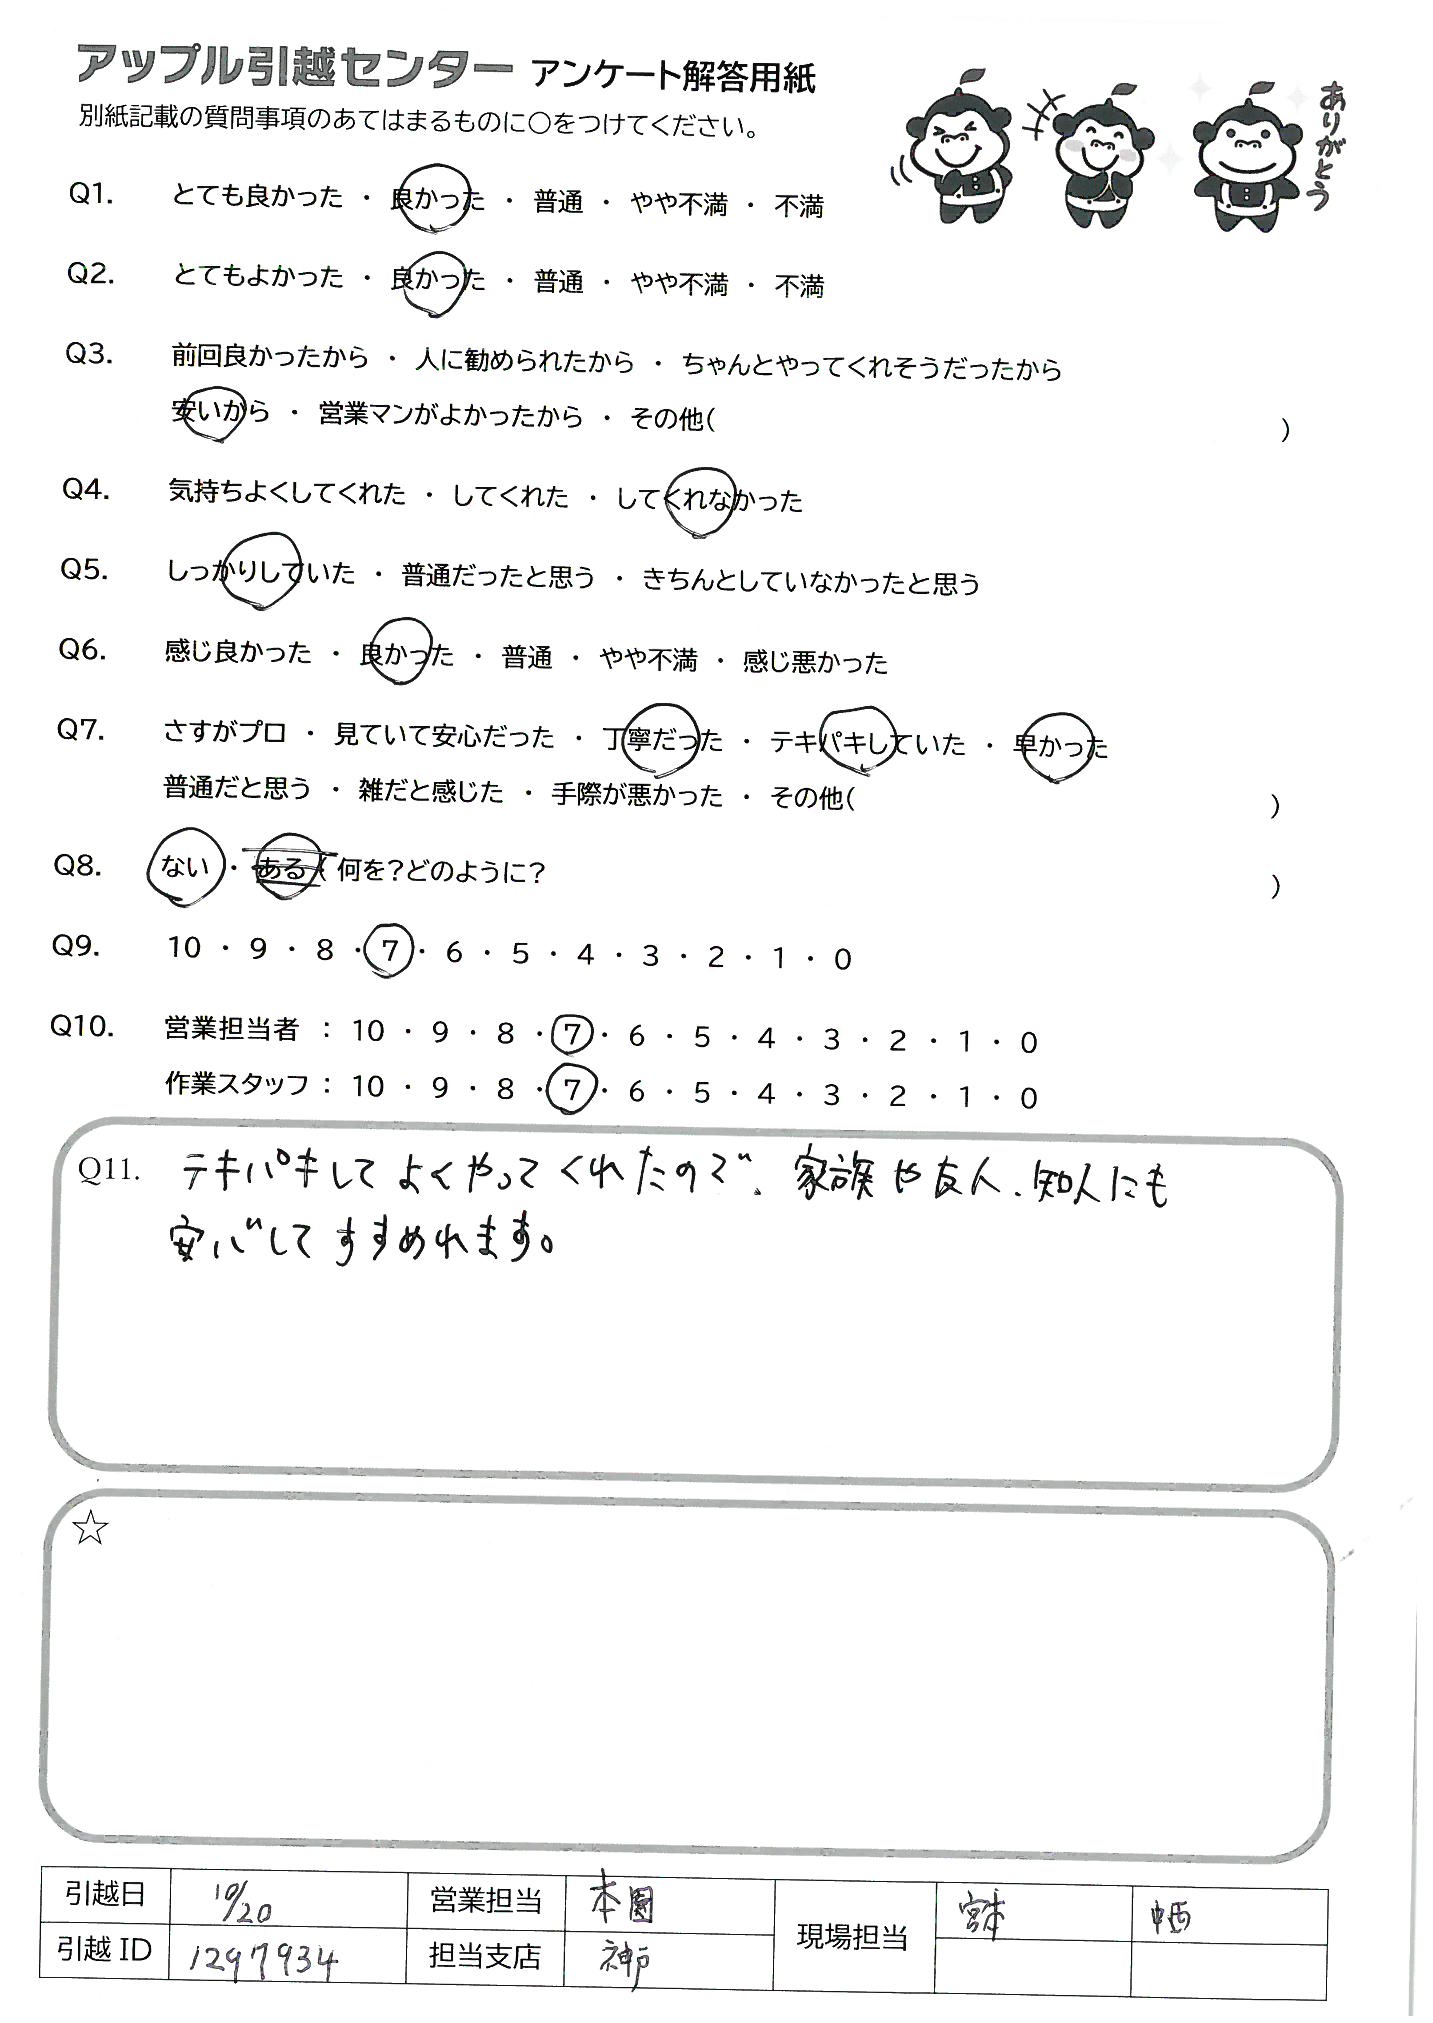 アップル引越センター アンケート解答用紙
別紙記載の質問事項のあてはまるものに○をつけてください。
ありがとう
Q1. とても良かった ・ 良かった ・ 普通 ・ やや不満 ・ 不満
Q2. とてもよかった ・ 良かった ・ 普通 ・ やや不満 ・ 不満
Q3. 前回良かったから ・ 人に勧められたから ・ ちゃんとやってくれそうだったから
安いから ・ 営業マンがよかったから ・ その他( )
Q4. 気持ちよくしてくれた ・ してくれた ・ してくれなかった
Q5. しっかりしていた ・ 普通だったと思う ・ きちんとしていなかったと思う
Q6. 感じ良かった ・ 良かった ・ 普通 ・ やや不満 ・ 感じ悪かった
Q7. さすがプロ ・ 見ていて安心だった ・ 丁寧だった ・ テキパキしていた ・ 早かった
普通だと思う ・ 雑だと感じた ・ 手際が悪かった ・ その他( )
Q8. ない ・ ある ( 何を?どのように? )
Q9. 10 ・ 9 ・ 8 ・ 7 ・ 6 ・ 5 ・ 4 ・ 3 ・ 2 ・ 1 ・ 0
Q10. 営業担当者 : 10 ・ 9 ・ 8 ・ 7 ・ 6 ・ 5 ・ 4 ・ 3 ・ 2 ・ 1 ・ 0
作業スタッフ : 10 ・ 9 ・ 8 ・ 7 ・ 6 ・ 5 ・ 4 ・ 3 ・ 2 ・ 1 ・ 0
Q11. テキパキしてよくやってくれたので、家族や友人、知人にも
安心してすすめれます。
☆
引越日 10/20 営業担当 本園 現場担当 宮本 中西
引越 ID 1297934 担当支店 神戸